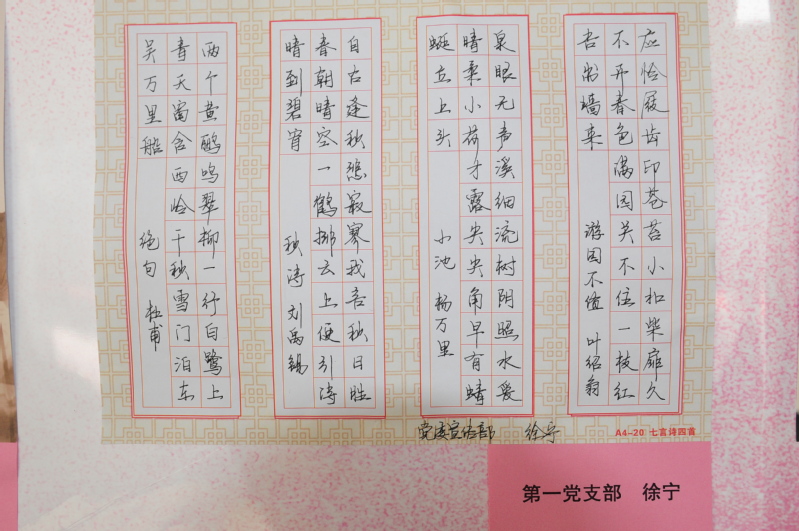 应怜屐齿印苍苔小扣柴扉久
不开春色满园关不住一枝红
杏出墙来 游园不值 叶绍翁
泉眼无声溪细流树阴照水爱
晴柔小荷才露尖尖角早有蜻
蜓立上头 小池 杨万里
自古逢秋悲寂寥我言秋日胜
春朝晴空一鹤排云上便引诗
晴到碧宵 秋诗 刘禹锡
两个黄鹂鸣翠柳一行白鹭上
青天窗含西岭千秋雪门泊东
吴万里船 绝句 杜甫
党委宣传部 徐宁
A4-20 七言诗四首
第一党支部 徐宁